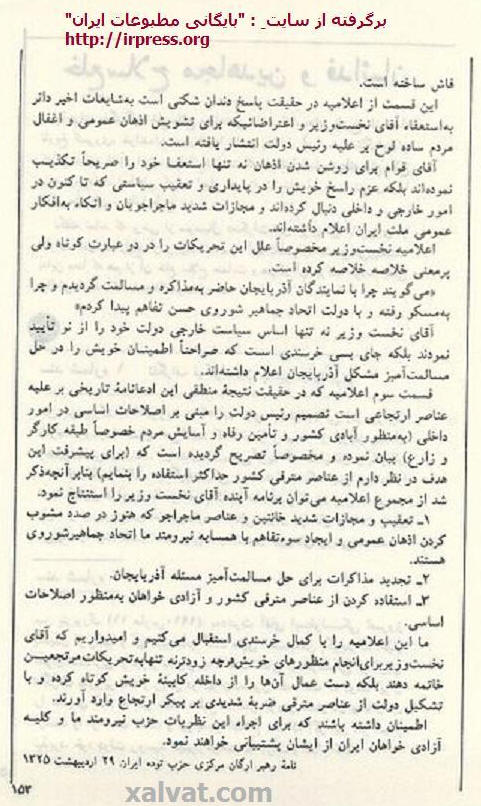 برگرفته از سایت : "بایگانی مطبوعات ایران"
http://irpress.org
فاش ساخته است.
این قسمت از اعلامیه در حقیقت پاسخ دندان شکنی است به‌شایعات اخیر دائر
به‌استعفاء آقای نخست‌وزیر و اعتراضاتیکه برای تشویش اذهان عمومی و اغفال
مردم ساده لوح بر علیه رئیس دولت انتشار یافته است.
آقای قوام برای روشن شدن اذهان نه تنها استعفا خود را صریحاً تکذیب
نموده‌اند بلکه عزم راسخ خویش را در پایداری و تعقیب سیاستی که تا کنون در
امور خارجی و داخلی دنبال کرده‌اند و مجازات شدید ماجراجویان و اتکاء به‌افکار
عمومی ملت ایران اعلام داشته‌اند.
اعلامیه نخست‌وزیر مخصوصاً علل این تحریکات را در دو عبارت کوتاه ولی
پرمعنی خلاصه خلاصه کرده است.
«می‌گویند چرا با نمایندگان آذربایجان حاضر به‌مذاکره و مسالمت گردیدم و چرا
به‌مسکو رفته و با دولت اتحاد جماهیر شوروی حسن تفاهم پیدا کردم»
آقای نخست وزیر نه تنها اساس سیاست خارجی دولت خود را از نو تأیید
نمودند بلکه جای بسی خرسندی است که صراحتاً اطمینان خویش را در حل
مسالمت‌آمیز مشکل آذربایجان اعلام داشته‌اند.
قسمت سوم اعلامیه که در حقیقت نتیجهٔ منطقی این ادعانامهٔ تاریخی بر علیه
عناصر ارتجاعی است تصمیم رئیس دولت را مبنی بر اصلاحات اساسی در امور
داخلی (به‌منظور آبادی کشور و تأمین رفاه و آسایش مردم خصوصاً طبقه کارگر
و زارع) بیان نموده و مخصوصاً تصریح گردیده است که (برای پیشرفت این
هدف در نظر دارم از عناصر مترقی کشور حداکثر استفاده را بنمایم) بنابر آنچه‌ذکر
شد از مجموع اعلامیه می‌توان برنامه آینده آقای نخست وزیر را استنتاج نمود.
۱ـ تعقیب و مجازات شدید خائنین و عناصر ماجراجو که هنوز در صدد مشوب
کردن اذهان عمومی و ایجاد سوءتفاهم با همسایه نیرومند ما اتحاد جماهیرشوروی
هستند.
۲ـ تجدید مذاکرات برای حل مسالمت‌آمیز مسئله آذربایجان.
۳ـ استفاده کردن از عناصر مترقی کشور و آزادی خواهان به‌منظور اصلاحات
اساسی.
ما این اعلامیه را با کمال خرسندی استقبال می‌کنیم و امیدواریم که آقای
نخست‌وزیربرای‌انجام منظورهای خویش‌هرچه زودترنه تنهابه‌تحریکات‌مرتجعین
خاتمه دهند بلکه دست عمال آن‌ها را از داخله کابینهٔ خویش کوتاه کرده و با
تشکیل دولت از عناصر مترقی ضربهٔ شدیدی بر پیکر ارتجاع وارد آورند.
اطمینان داشته باشند که برای اجراء این نظریات حزب نیرومند ما و کلیه
آزادی خواهان ایران از ایشان پشتیبانی خواهند نمود.
نامهٔ رهبر ارگان مرکزی حزب توده ایران ۲۹ اردیبهشت ۱۳۲۵
۱۵۳
xalvat.com